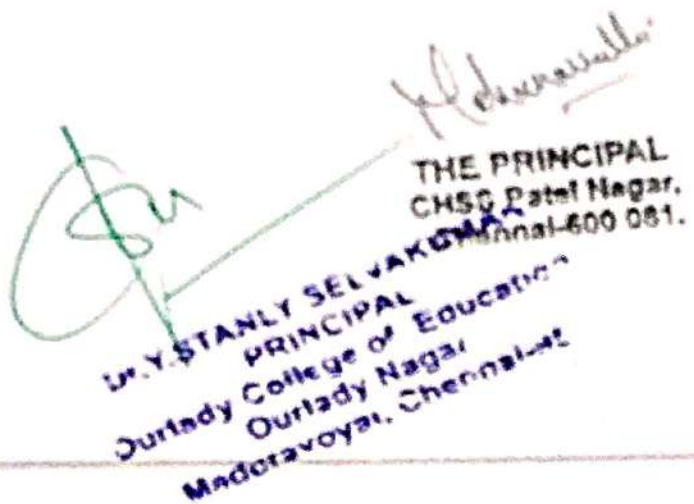 THE PRINCIPAL
CHSS Patel Nagar,
Chennai-600 081.
Dr.Y.STANLY SELVAKUMAR
PRINCIPAL
Ourlady College of Education
Ourlady Nagar
Madoravoyal, Chennai-